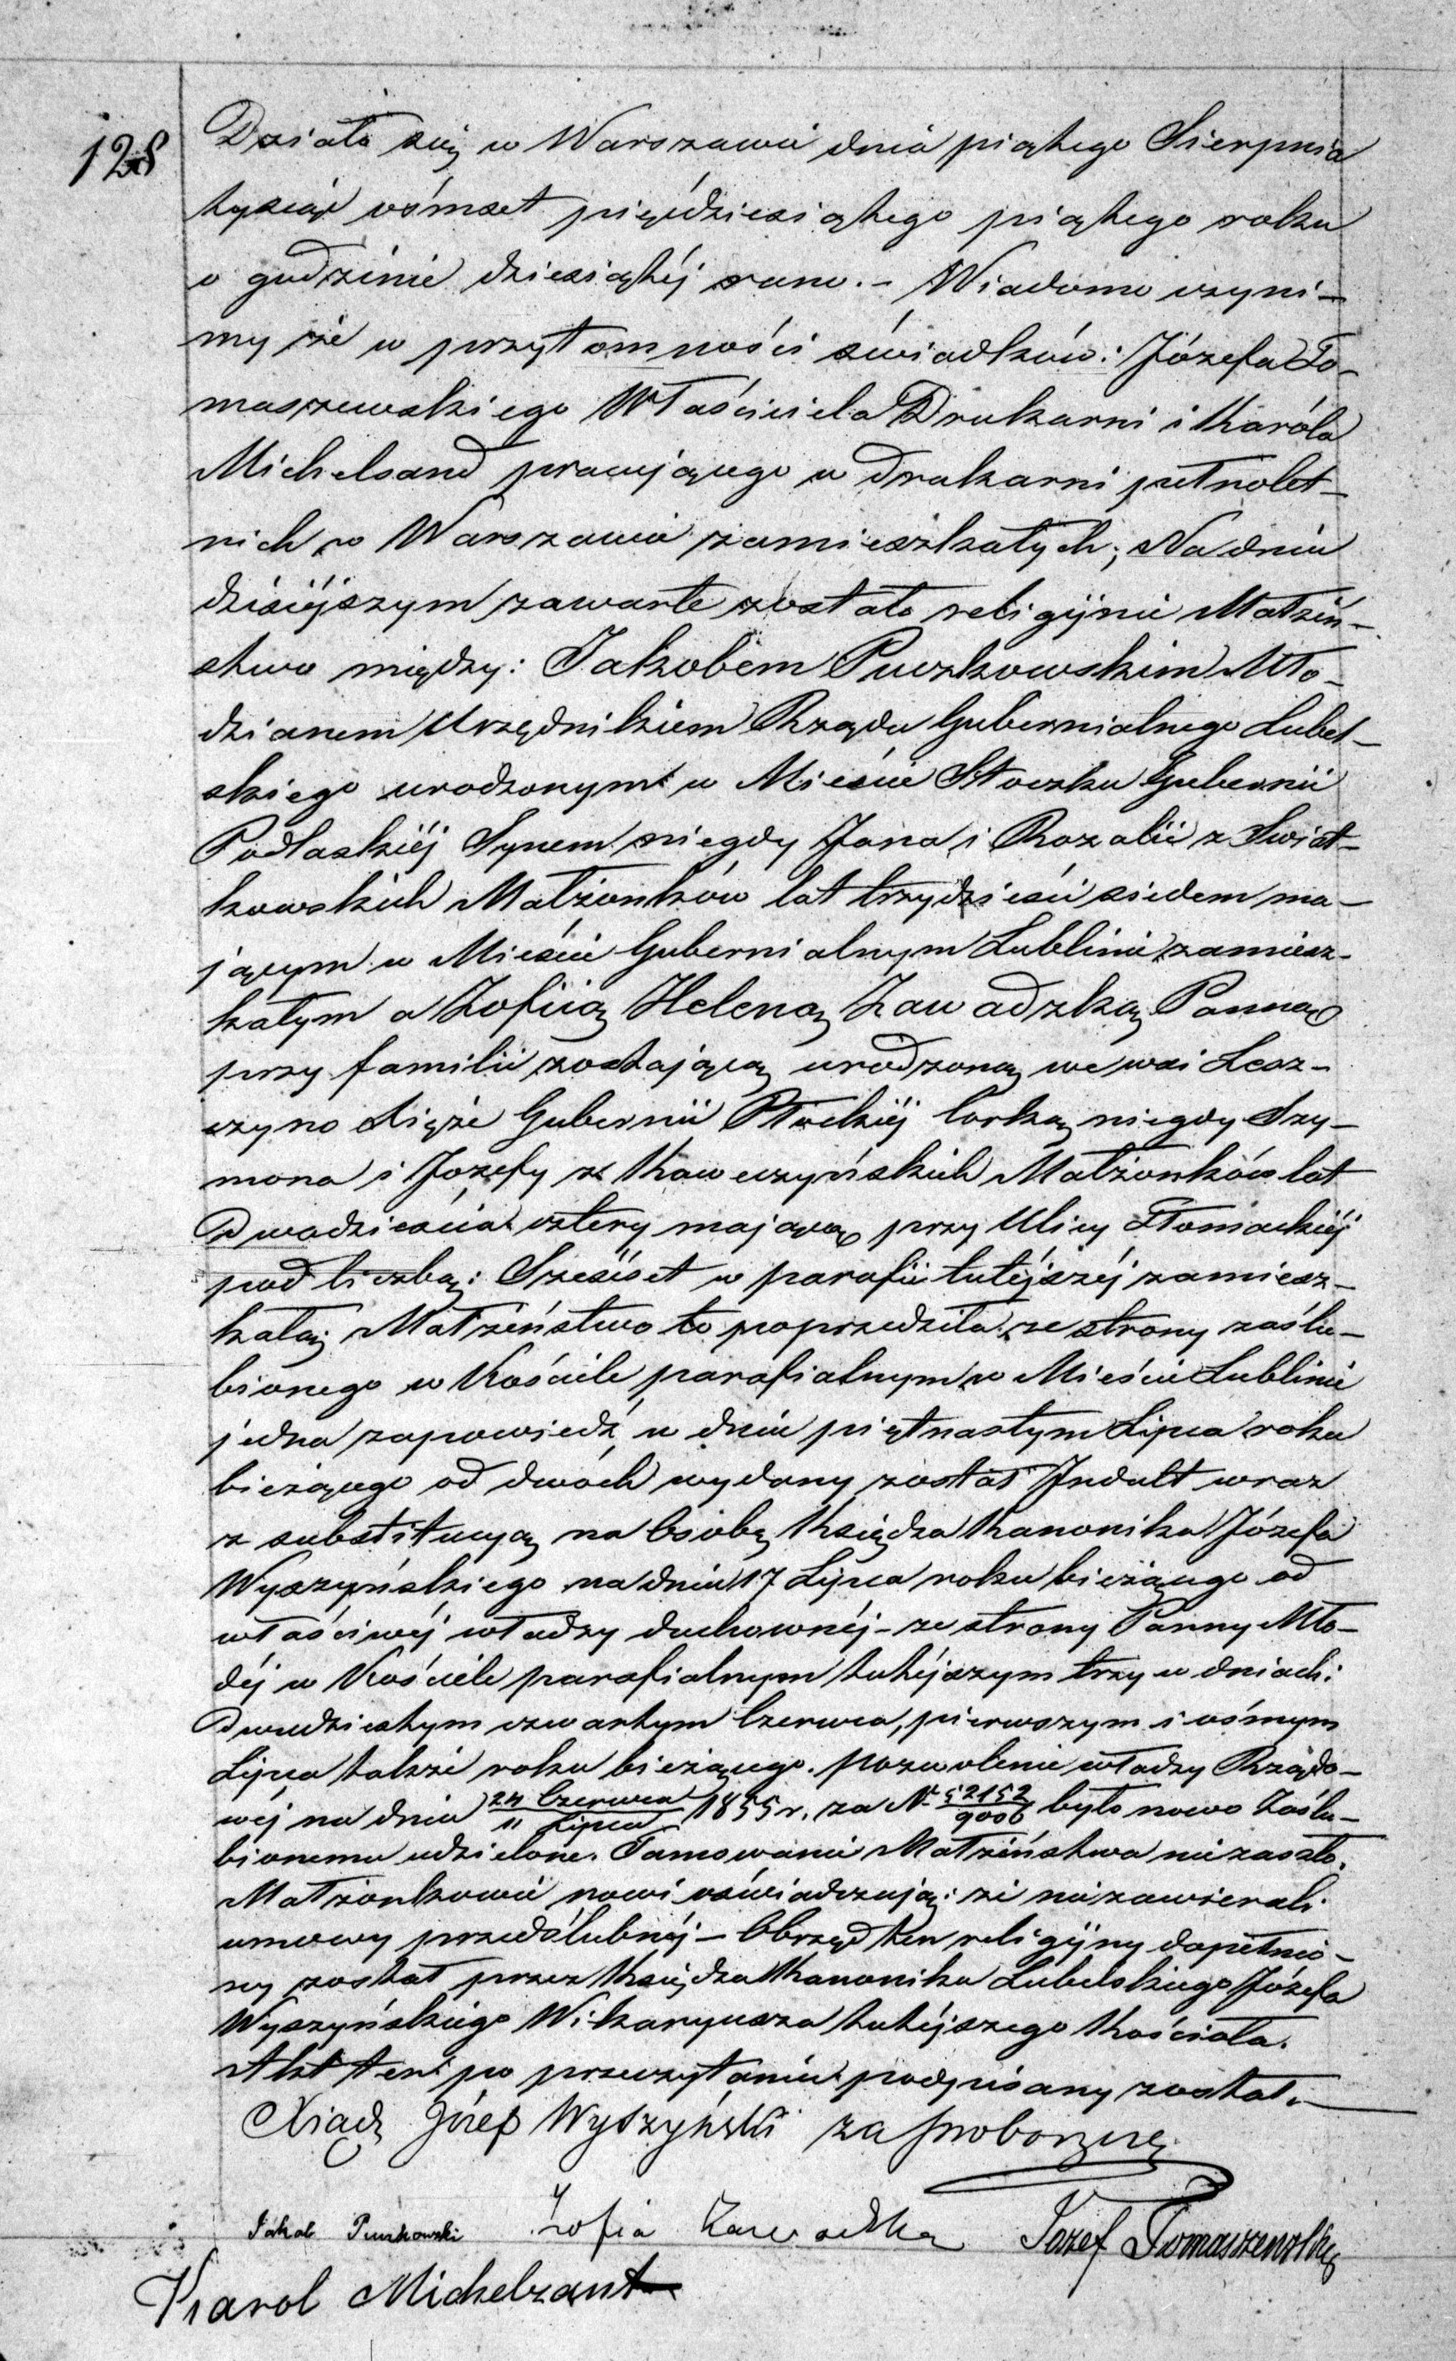 128
Działo się w Warszawie dnia piątego Sierpnia
tysiąc ósmset pięćdziesiątego piątego roku
o godzinie dziesiątéj rano. – Wiadomo czyni-
my że w przytomności świadków: Józefa To-
maszewskiego Właściciela Drukarni i Karóla
Michelsand pracującego w drukarni pełnolet-
nich w Warszawie zamieszkałych; Na dniu
dzisiéjszym zawarte zostało religijnie Małżeń-
stwo między: Jakóbem Puczkowskim Mło-
dzianem Urzędnikiem Rządu Gubernialnego Lubel-
skiego urodzonym w Mieście Stoczku Gubernii
Podlaskiéj Synem niegdy Jana i Rozalii z Swiat-
kowskich Małżonków lat trzydzieści siedem ma-
jącym w Mieście Gubernialnym Lublinie zamiesz-
kałym a Zofiią Heleną Zawadzką Panną
przy familii zostającą urodzoną we wsi Lesz-
czyno Xięże Gubernii Płockiéj Corką niegdy Szy-
mona i Jozefy z Kaweczyńskich Małżonków lat
Dwadzieścia cztery mającą przy Ulicy Tłomackiéj
pod liczbą: Sześćset w parafii tutéjszéj zamiesz-
kałą. Małżeństwo to poprzedziła ze strony zaślu-
bionego w Kościele parafialnym w Mieście Lublinie
jedna zapowiedź w dniu piętnastym Lipca roku
bieżącego od dwóch wydany został Indult wraz
z substitucyą na Osobę Księdza Kanonika Józefa
Wyszyńskiego na dniu 17 Lipca roku bieżącego od
właściwéj władzy duchownéj – ze strony Panny Mło-
déj w Kościele parafialnym tutéjszym trzy w dniach:
Dwudziestym czwartym Czerwca, pierwszym i ósmym
Lipca także roku bieżącego. pozwolenie władzy Rządo-
wéj na dniu 24 Czerwca/11 Lipca 1855 r. za Nr 52152/9006 było nowo Zaślu-
bionemu udzielone. Tamowanie Małżeństwa nie zaszło.
Małżonkowie nowi oświadczają: że nie zawierali
umowy przedślubnéj – Obrzęd ten religijny dopełnio-
ny został przez Księdza Kanonika Lubelskiego Józefa
Wyszyńskiego Wikaryusza tutéjszego Kościoła.
Akt ten po przeczytaniu podpisany został. –
Xiądz Józef Wyszyński za proboszcza
Jakób Puczkowski Zofia Zawadzka Józef Tomaszewski
Karol Michelzant